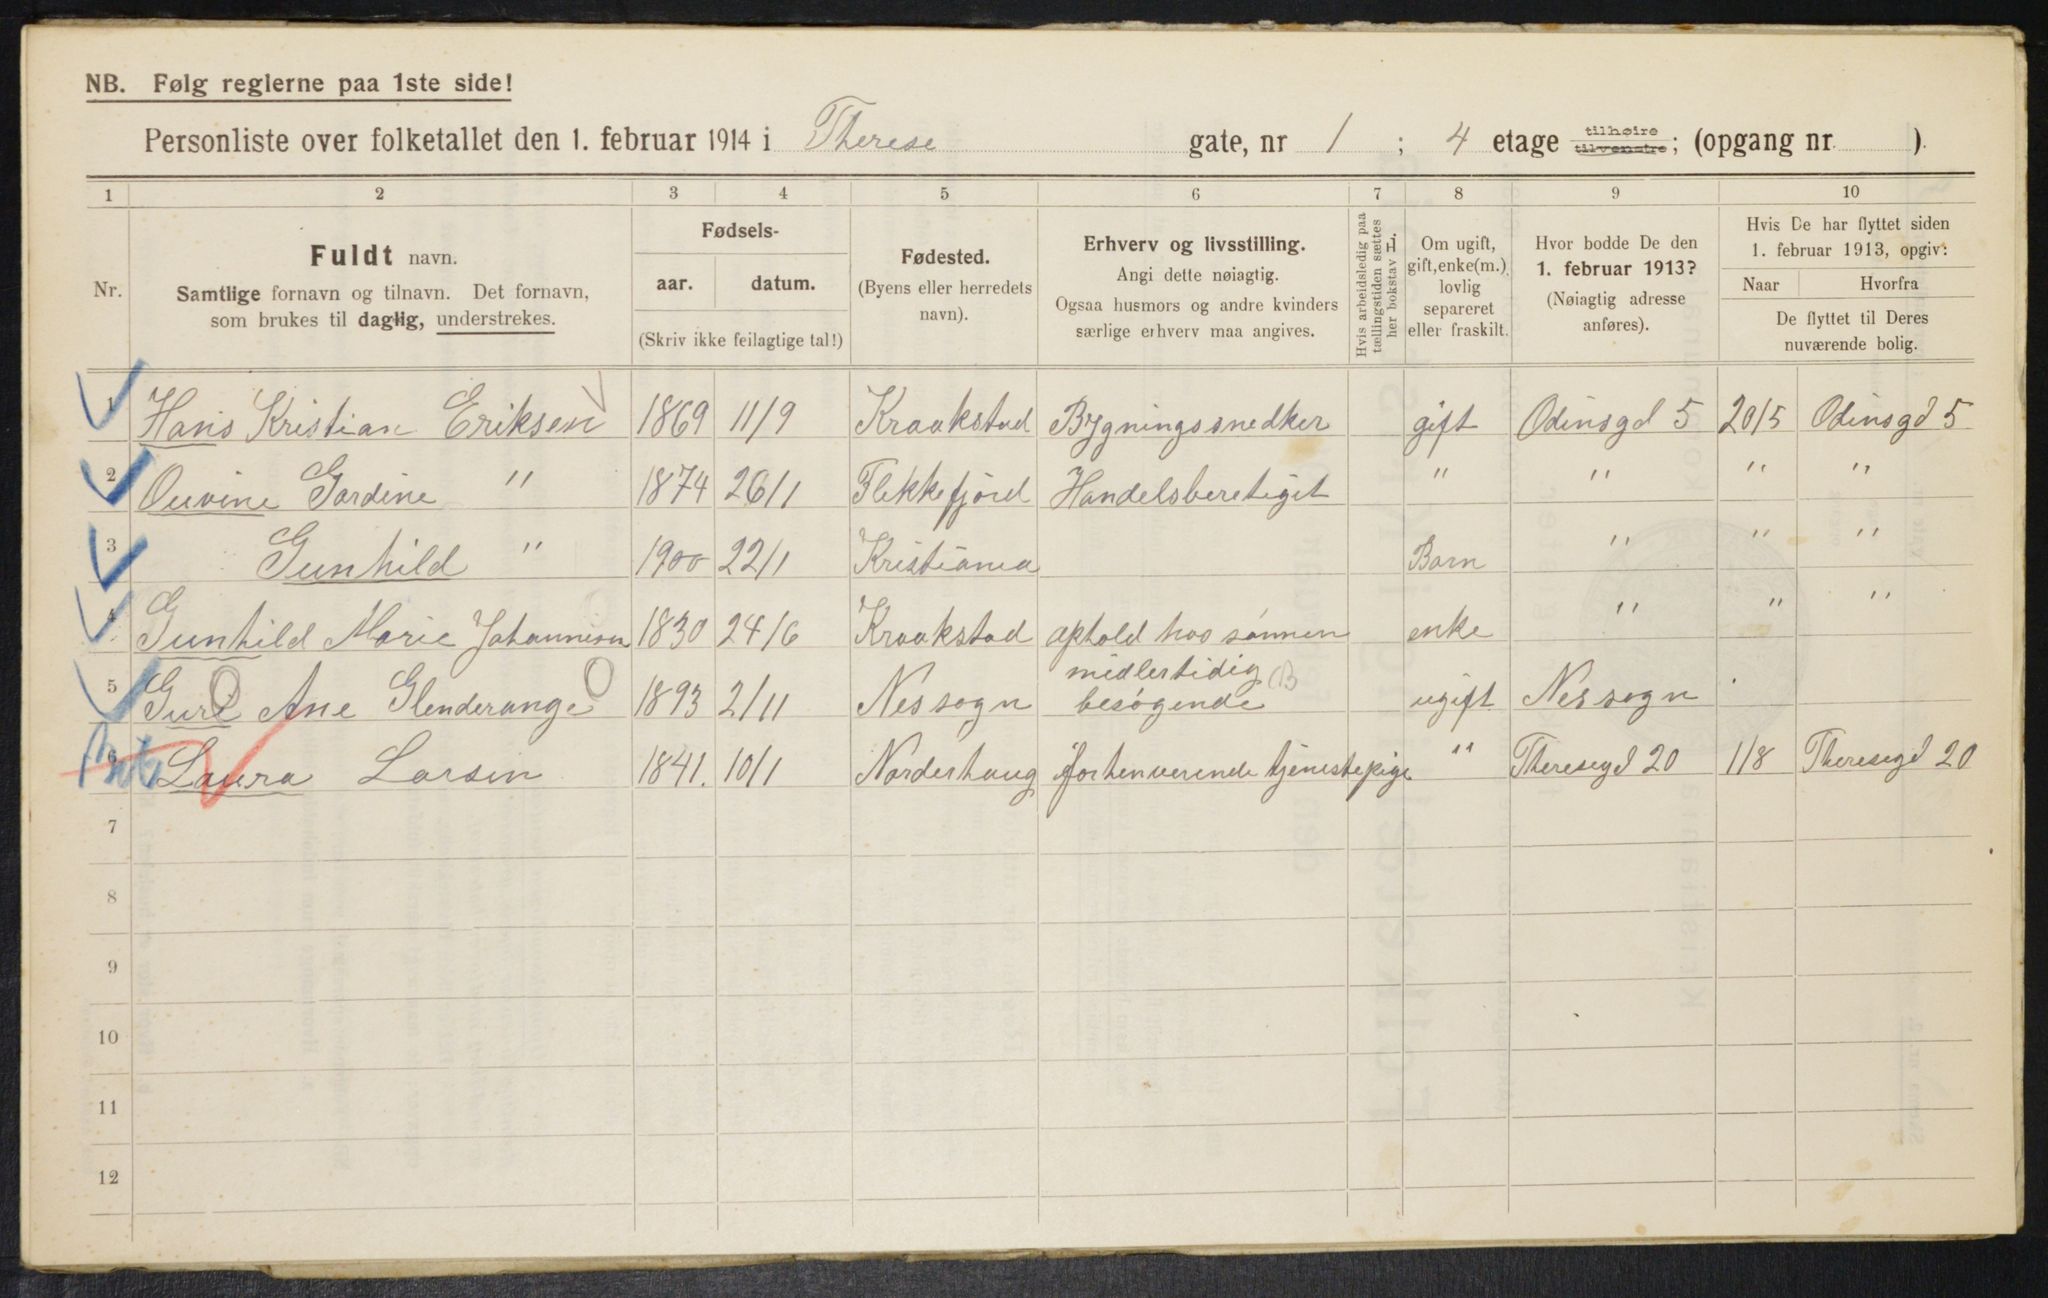 NB. Følg reglerne paa 1ste side!
Personliste over folketallet den 1. februar 1914 i Therese gate, nr 1 ; 4 etage tilhøire tilvenstre; (opgang nr. ).
1 2 3 4 5 6 7 8 9 10
Nr.
Fuldt navn.
Samtlige fornavn og tilnavn. Det fornavn,
som brukes til daglig, understrekes.
Fødsels-
aar. datum.
(Skriv ikke feilagtige tal!)
Fødested.
(Byens eller herredets
navn).
Erhverv og livsstilling.
Angi dette nøiagtig.
Ogsaa husmors og andre kvinders
særlige erhverv maa angives.
Hvis arbeidsledig paa
tællingstiden sættes
her bokstav L.
Om ugift,
gift, enke(m.)
lovlig
separeret
eller fraskilt.
Hvor bodde De den
1. februar 1913?
(Nøiagtig adresse
anføres).
Hvis De har flyttet siden
1. februar 1913, opgiv:
Naar Hvorfra
De flyttet til Deres
nuværende bolig.
1 Hans Kristian Eriksen 1869 11/9 Kraakstad Bygningssnedker gift Odinsgd 5 20/5 Odinsgd 5
2 Ouvine Gardine " 1874 26/1 Flekkefjord Handelsberetiget " " " "
3 Gunhild " 1900 22/1 Kristiania Barn " " "
4 Gunhild Marie Johannesen 1830 24/6 Kraakstad ophold hos sønnen enke " " "
5 Guri Ane Glenderange 1893 2/11 Nes sogn midlertidig besøgende B ugift Nes sogn
6 Laura Larsen 1841. 10/1 Norderhaug forhenverende tjenestepige " Theresegd 20 1/8 Theresegd 20
7
8
9
10
11
12